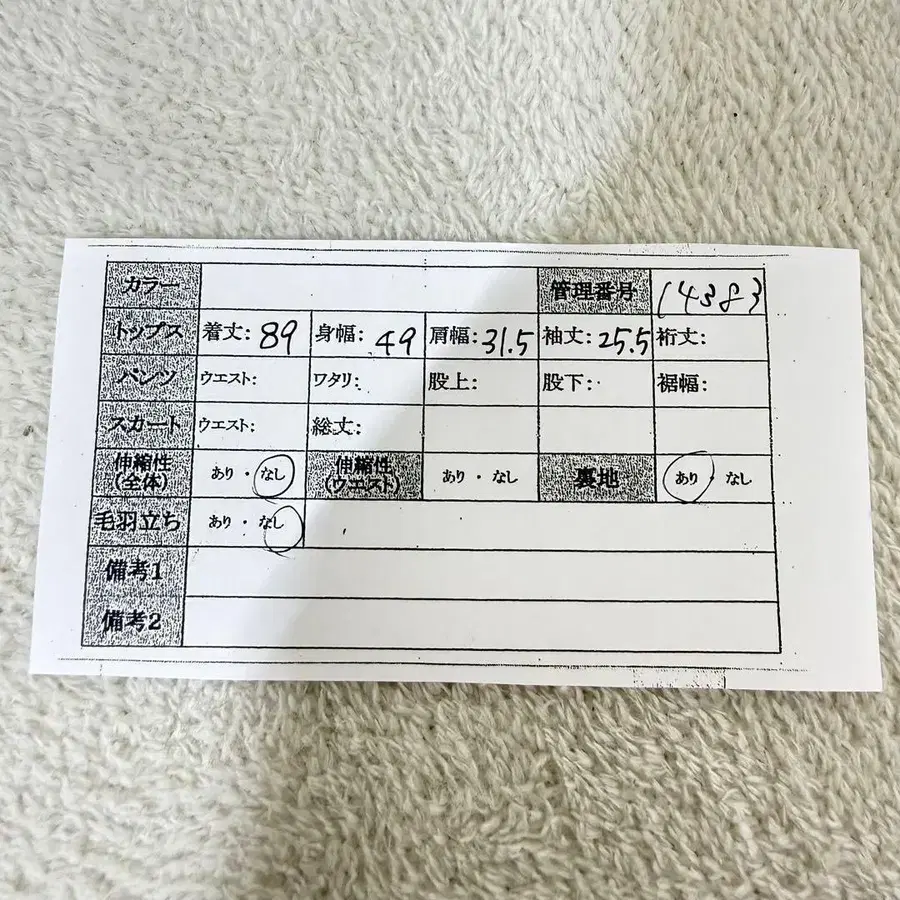 カラー 管理番号 14383
トップス 着丈: 89 身幅: 49 肩幅: 31.5 袖丈: 25.5 裄丈:
パンツ ウエスト: ワタリ: 股上: 股下: 裾幅:
スカート ウエスト: 総丈:
伸縮性(全体) あり・なし 伸縮性(ウエスト) あり・なし 裏地 あり・なし
毛羽立ち あり・なし
備考1
備考2